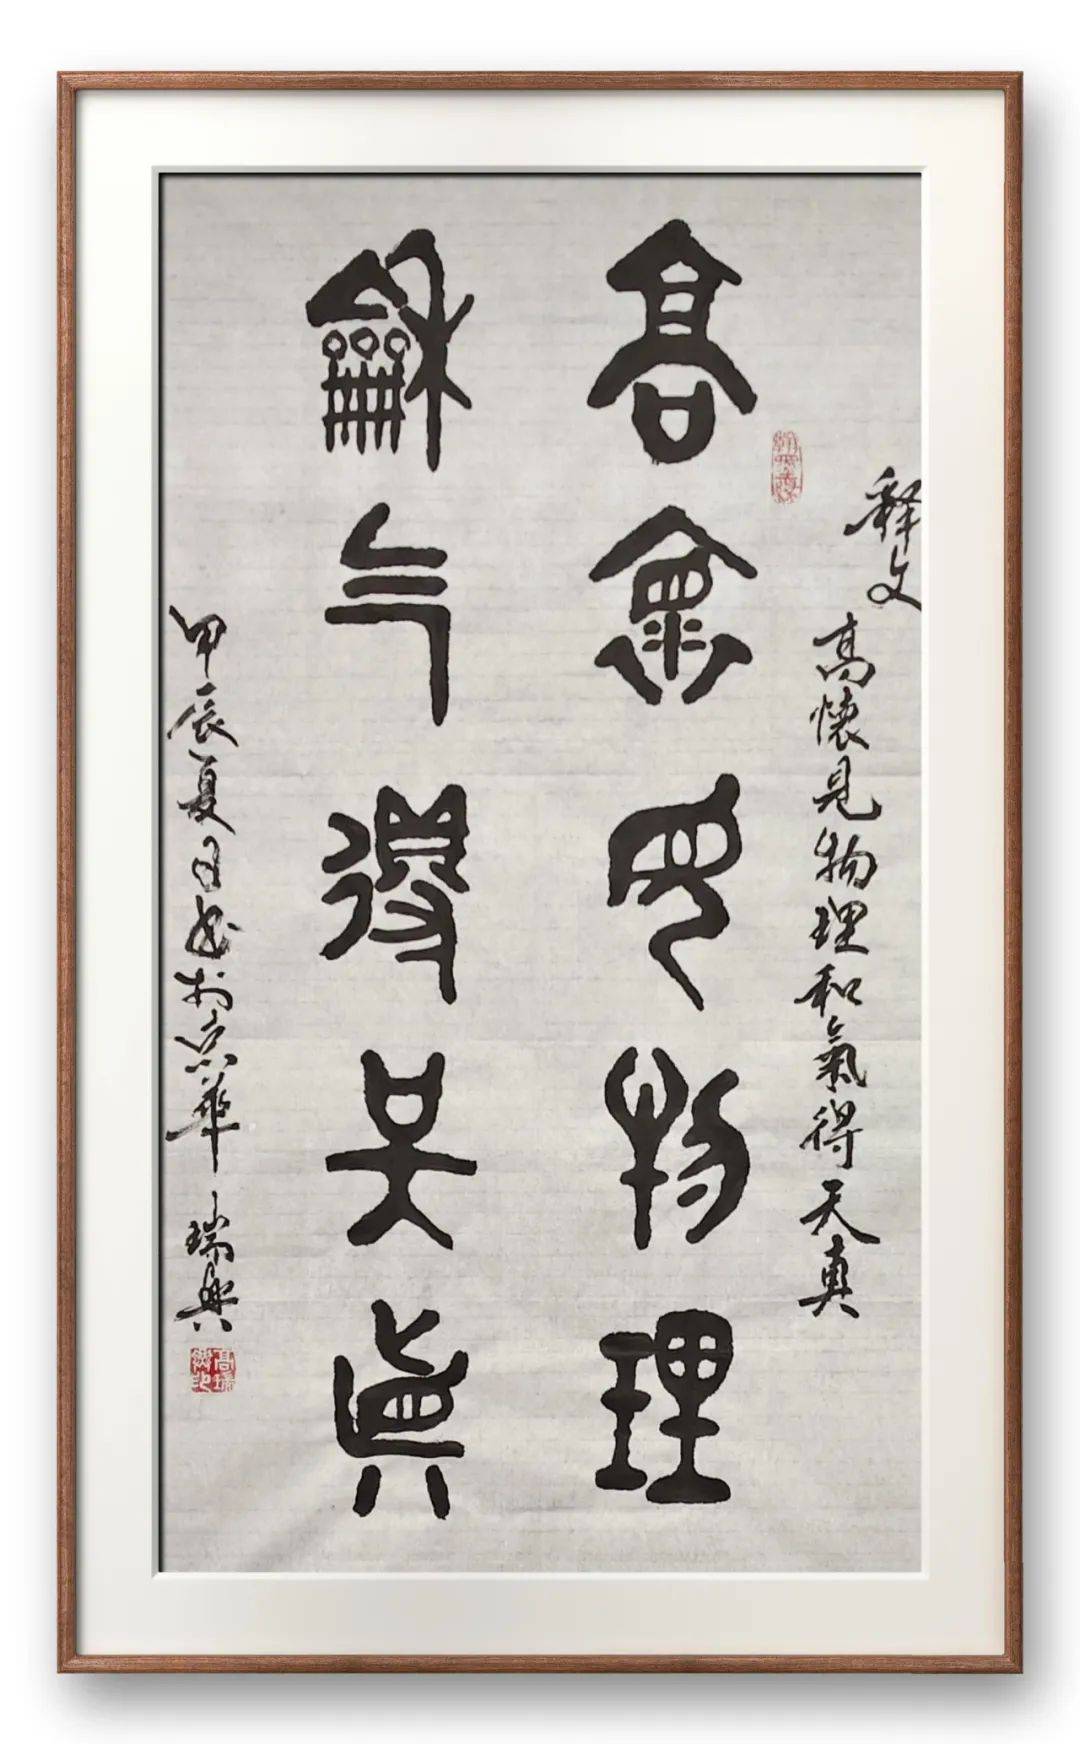 释文
高懷見物理和氣得天真
高褱見物理
龢气得天真
甲辰夏月书於京華 瑞兴